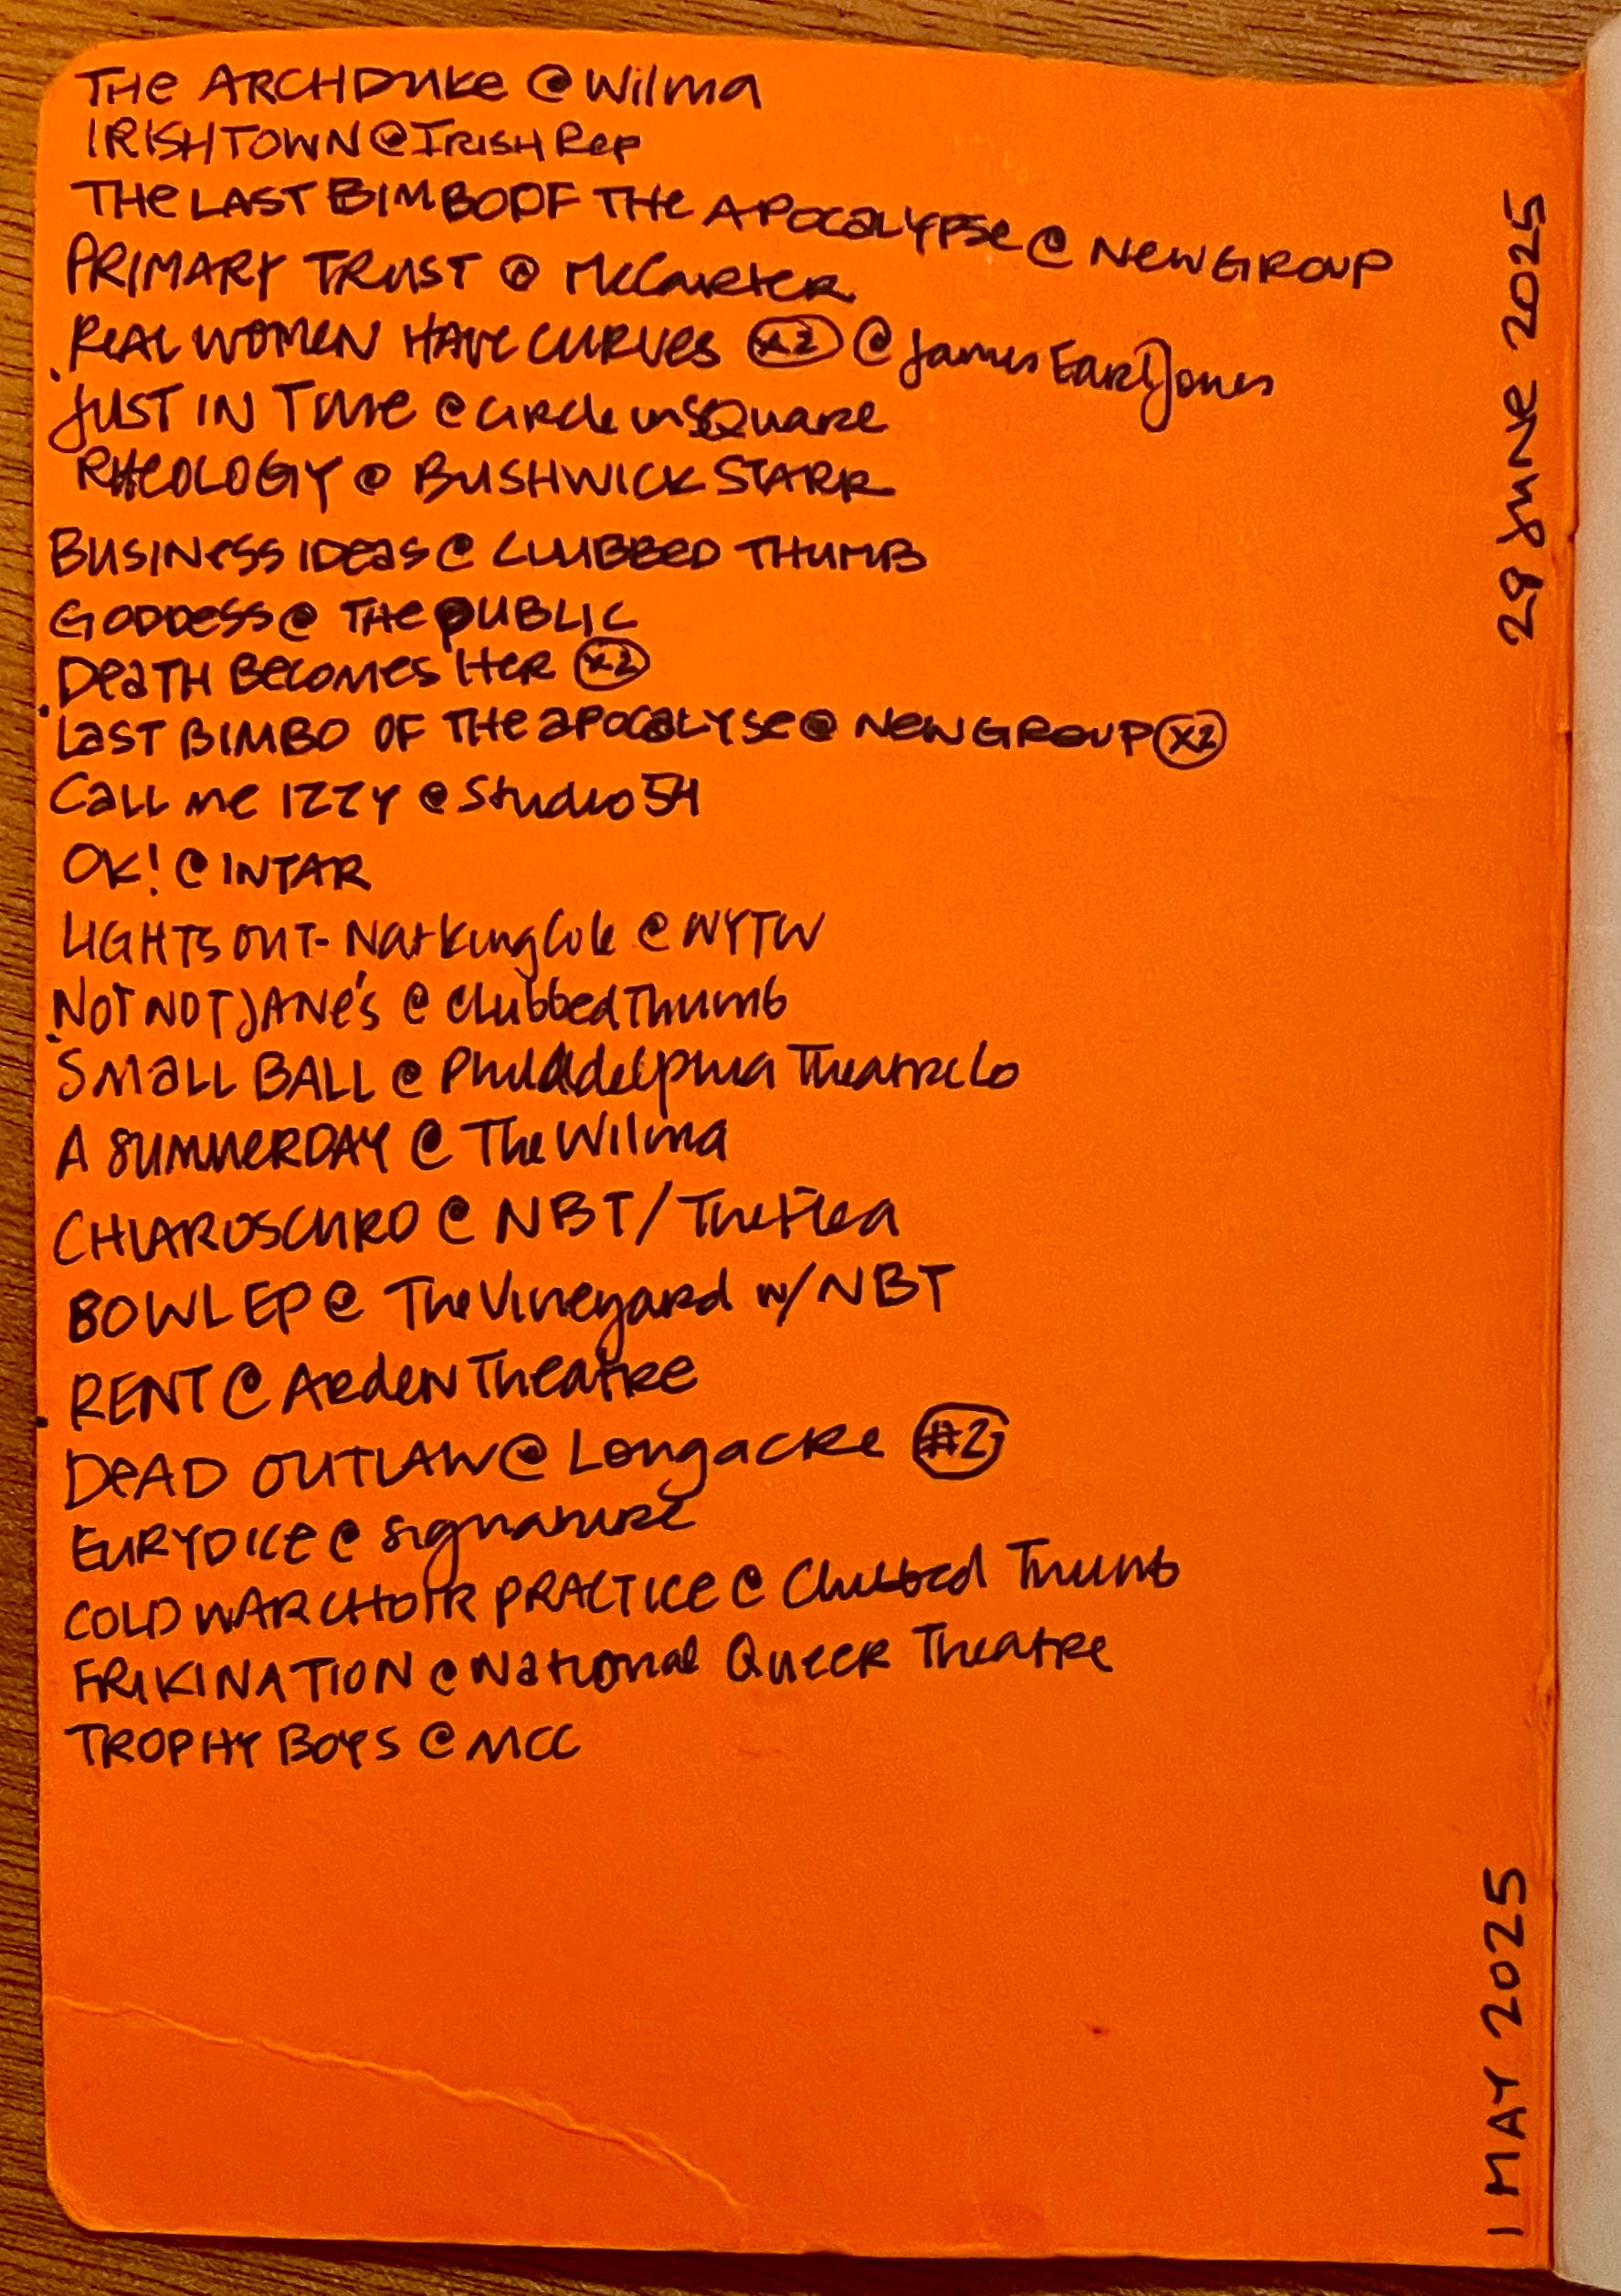 THE ARCHDUKE @ Wilma
IRISHTOWN @ IRISH Rep
THE LAST BIMBO OF THE APOCALYPSE @ NEW GROUP
PRIMARY TRUST @ McCarter
REAL WOMEN HAVE CURVES x2 @ James Earl Jones
JUST IN TIME @ Circle in SQuare
RHEOLOGY @ BUSHWICK STARR
BUSINESS IDEAS @ CLUBBED THUMB
GODDESS @ THE PUBLIC
DEATH BECOMES HER x2
LAST BIMBO OF THE APOCALYSE @ NEW GROUP x2
CALL ME IZZY @ Studio 54
OK! @ INTAR
LIGHTS OUT- Nat King Cole @ NYTW
NOT NOT JANE'S @ Clubbed Thumb
SMALL BALL @ Philadelphia Theatre Co
A SUMMER DAY @ The Wilma
CHIAROSCURO @ NBT / The Flea
BOWL EP @ The Vineyard w/ NBT
RENT @ Arden Theatre
DEAD OUTLAW @ Longacre #2
EURYDICE @ Signature
COLD WAR CHOIR PRACTICE @ Clubbed Thumb
FRIKINATION @ National Queer Theatre
TROPHY BOYS @ MCC
29 JUNE 2025
1 MAY 2025